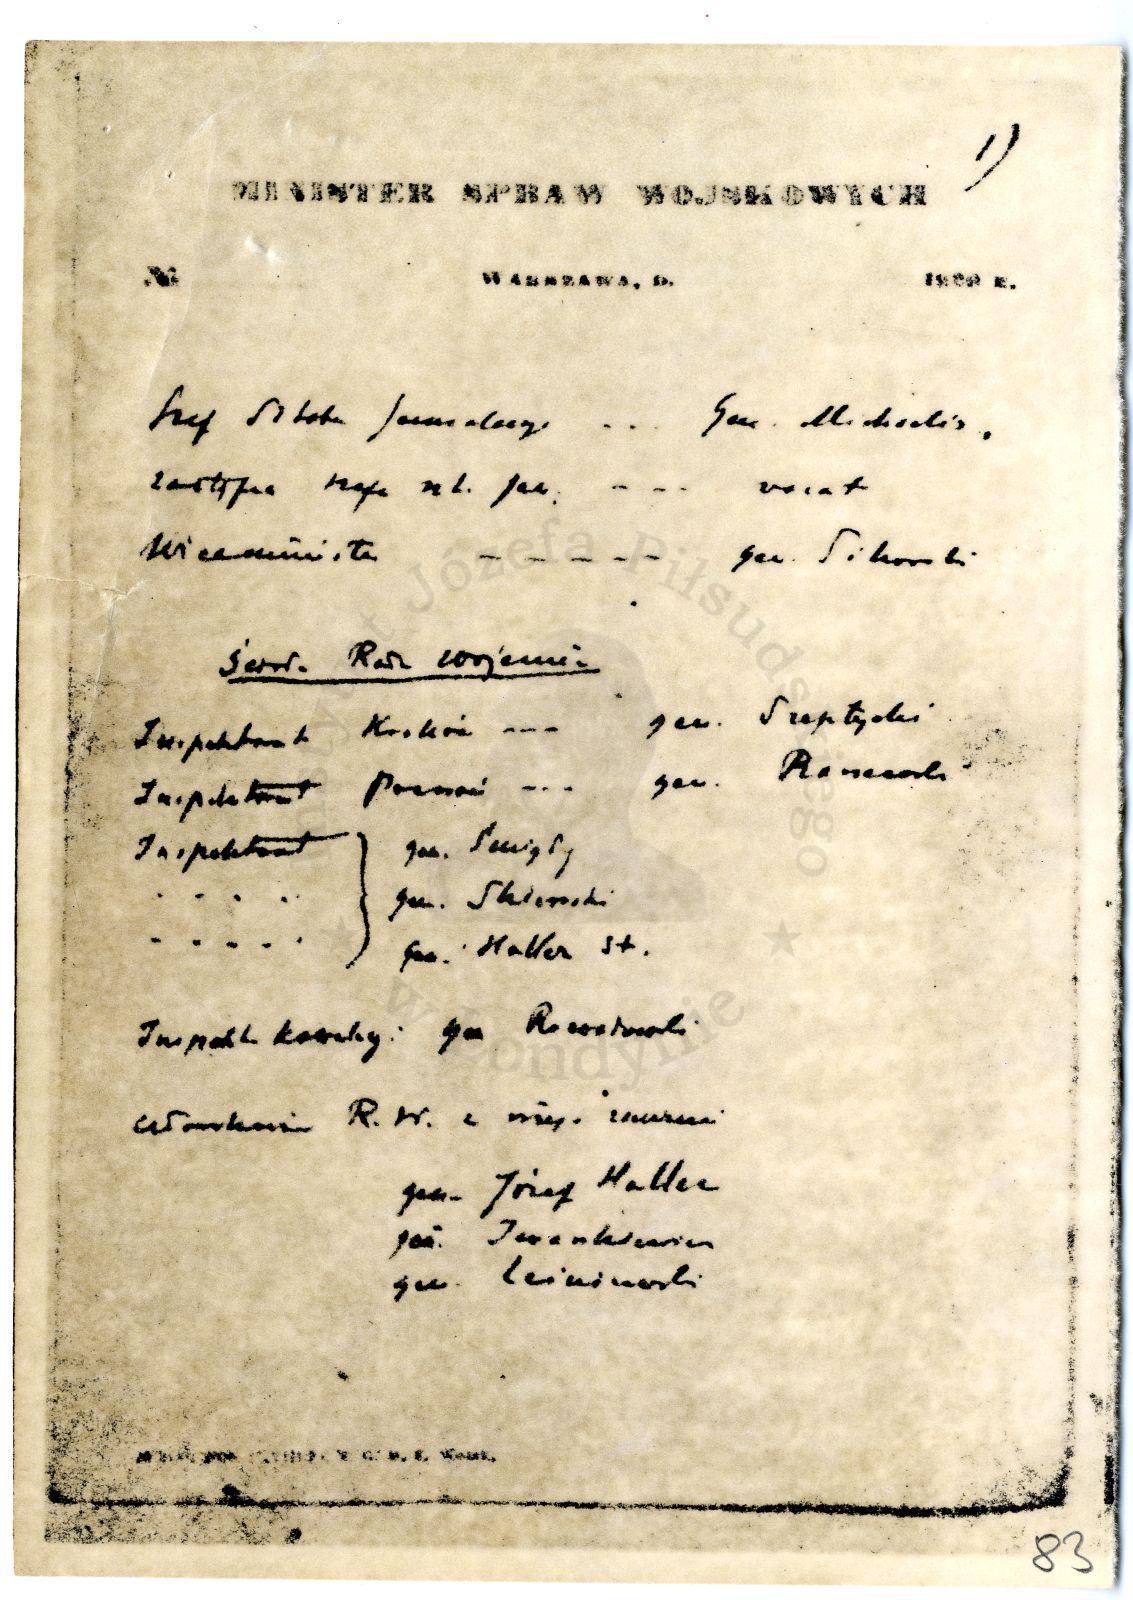 1)
MINISTER SPRAW WOJSKOWYCH
№ WARSZAWA, D. 1920 R.
Szef Sztabu Generalnego - - - Gen. Michaelis,
zastępca szefa szt. gen. - - - vacat
Wiceminister - - - - - gen. Sikorski
Ścisła Rada Wojenna
Inspektorat Kraków --- gen. Szeptycki
Inspektorat Poznań --- gen. Raszewski
Inspektorat gen. Śmigły
- - - - gen. Skierski
- - - - - gen. Haller St.
Inspekt. kawalerji: gen Rozwadowski
członkowie R. W. z
gen. Józef Haller
gen. Iwaszkiewicz
gen. Leśniewski
83
Instytut Józefa Piłsudskiego
w Londynie